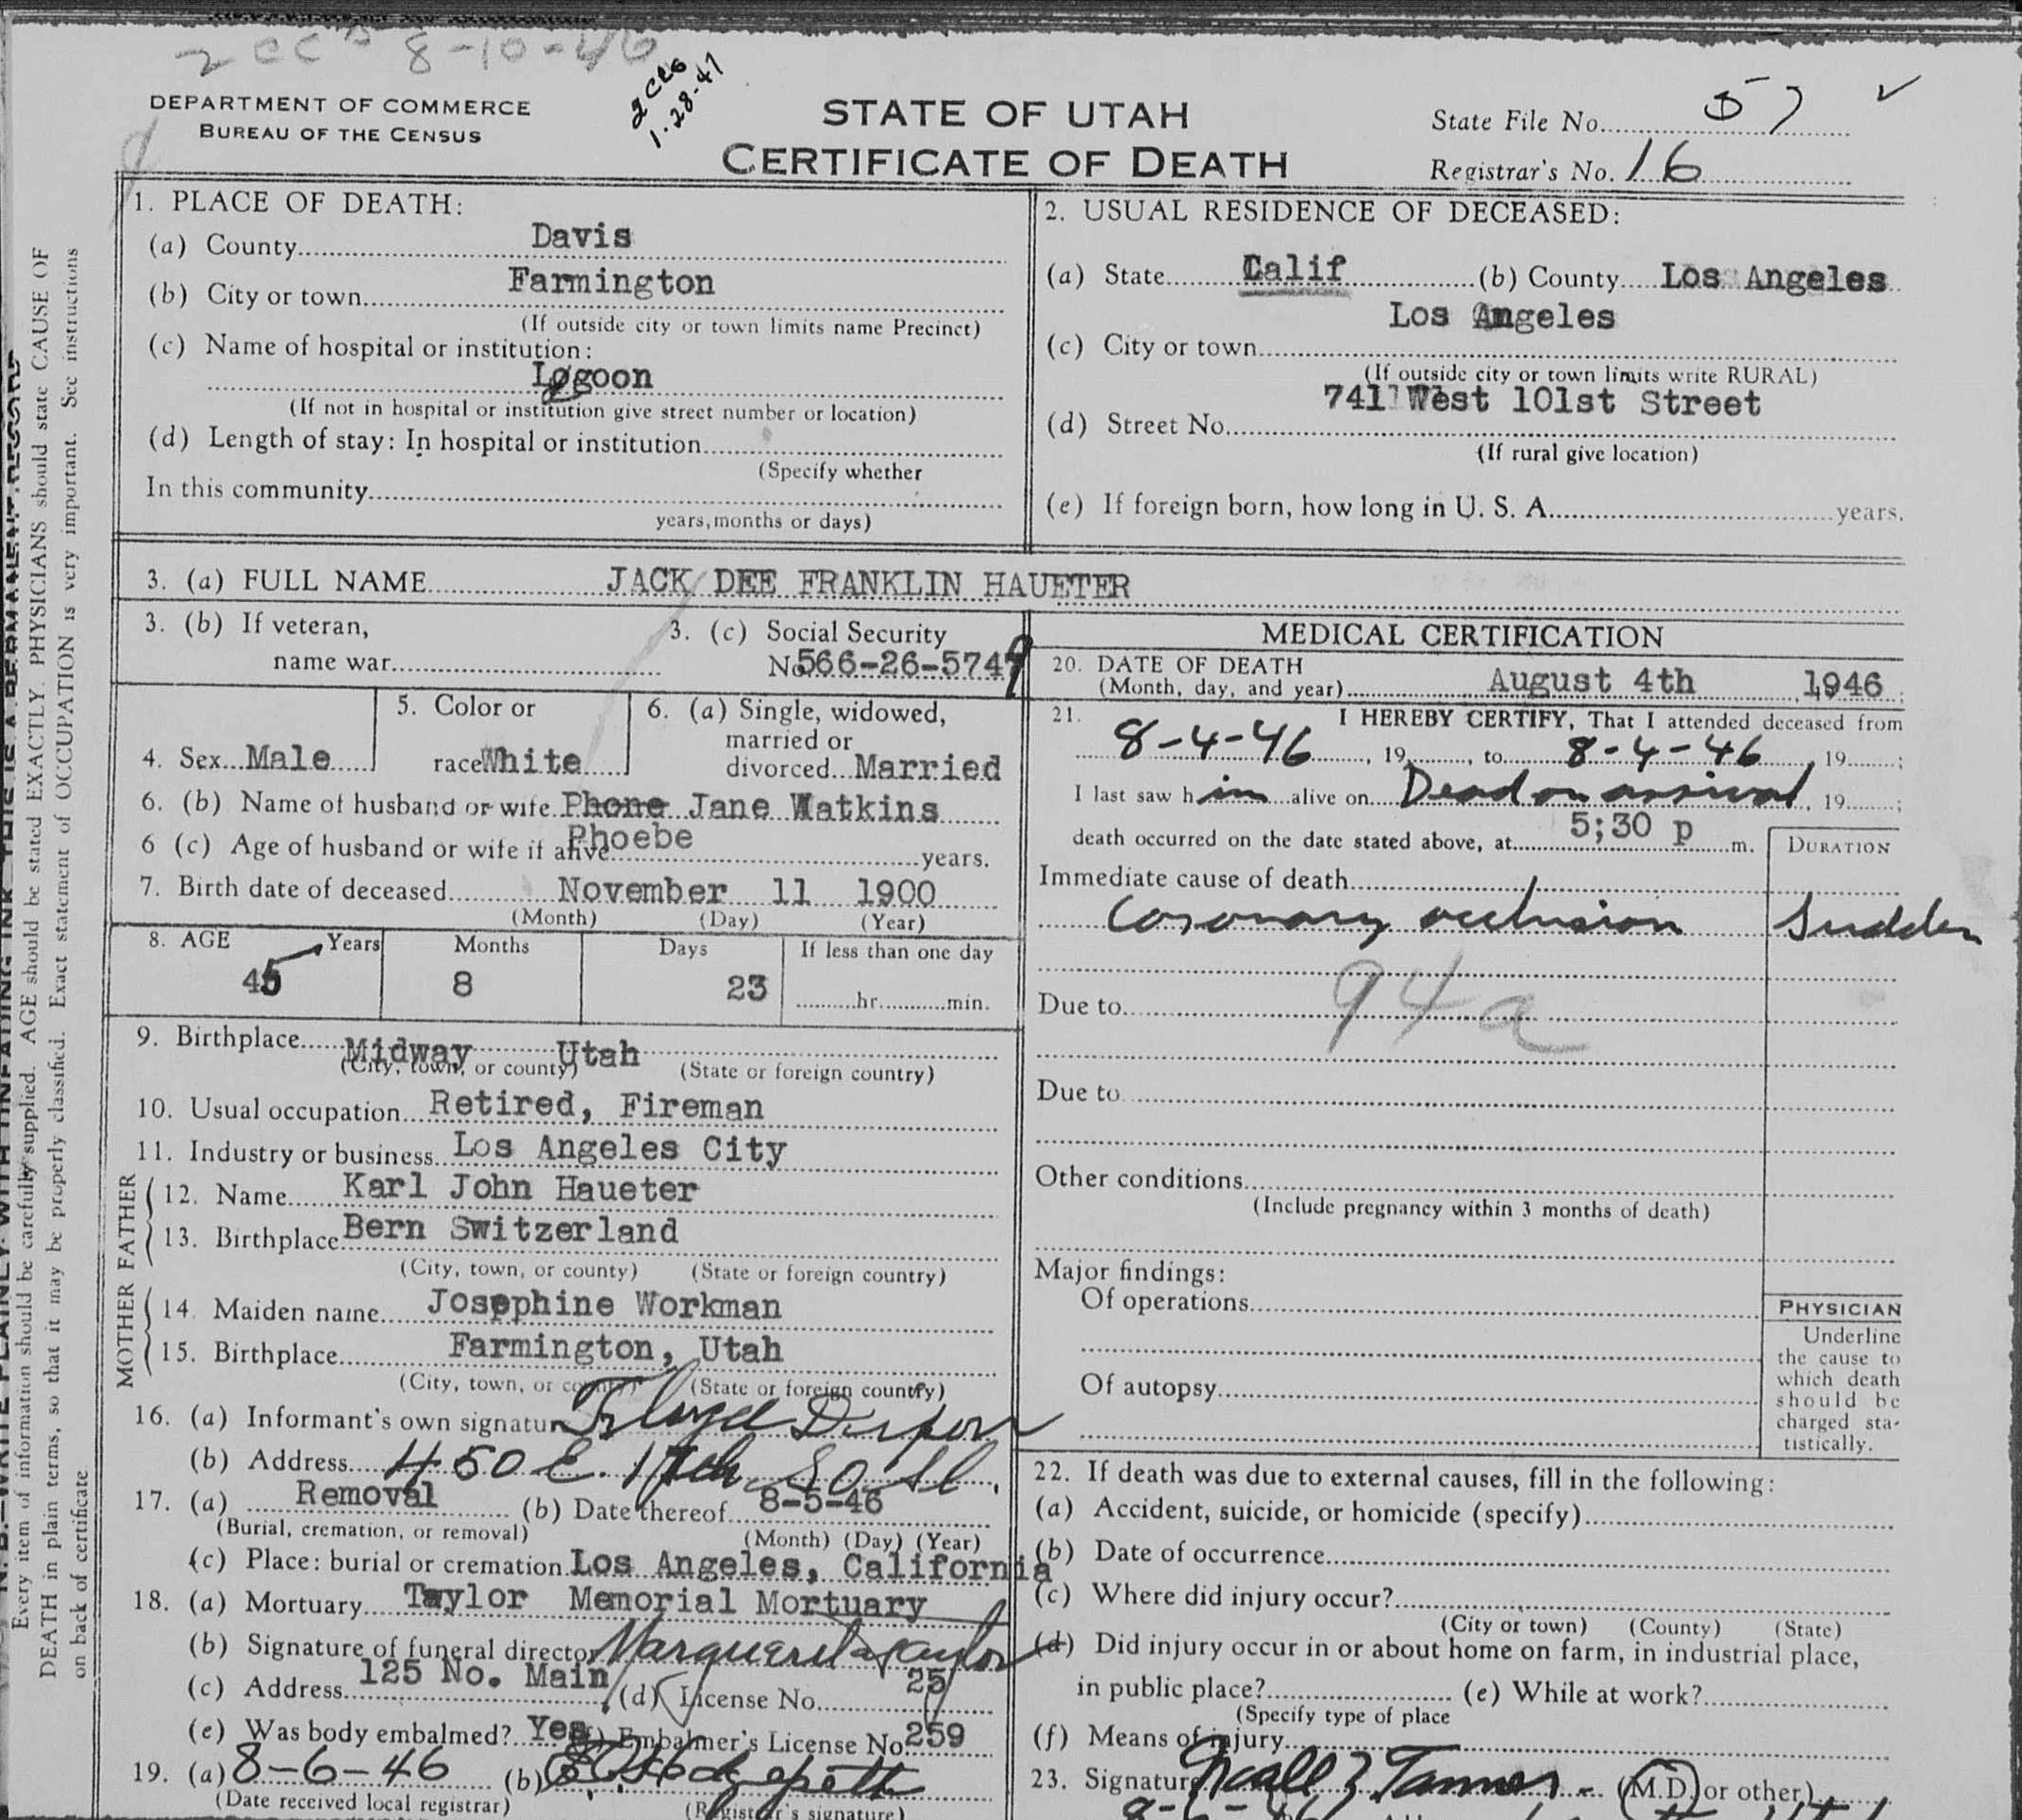 2 CC's 8-10-46
2 CCs
1-28-47
DEPARTMENT OF COMMERCE
BUREAU OF THE CENSUS
STATE OF UTAH
CERTIFICATE OF DEATH
State File No. 57 ✓
Registrar's No. 16
1. PLACE OF DEATH:
(a) County Davis
(b) City or town Farmington
(If outside city or town limits name Precinct)
(c) Name of hospital or institution:
Lagoon
(If not in hospital or institution give street number or location)
(d) Length of stay: In hospital or institution
(Specify whether
In this community
years, months or days)
2. USUAL RESIDENCE OF DECEASED:
(a) State Calif (b) County Los Angeles
Los Angeles
(c) City or town
(If outside city or town limits write RURAL)
741 West 101st Street
(d) Street No.
(If rural give location)
(e) If foreign born, how long in U. S. A. years.
3. (a) FULL NAME JACK DEE FRANKLIN HAUETER
3. (b) If veteran,
name war
3. (c) Social Security
No 566-26-5749
4. Sex Male
5. Color or
race White
6. (a) Single, widowed,
married or
divorced Married
6. (b) Name of husband or wife Phone Jane Watkins
Phoebe
6 (c) Age of husband or wife if alive years.
7. Birth date of deceased November 11 1900
(Month) (Day) (Year)
8. AGE Years Months Days If less than one day
45 8 23 hr. min.
9. Birthplace Midway Utah
(City, town, or county) (State or foreign country)
10. Usual occupation Retired, Fireman
11. Industry or business Los Angeles City
FATHER
12. Name Karl John Haueter
13. Birthplace Bern Switzerland
(City, town, or county) (State or foreign country)
MOTHER
14. Maiden name Josephine Workman
15. Birthplace Farmington, Utah
(City, town, or county) (State or foreign country)
16. (a) Informant's own signature Floyd
(b) Address 450 E. 17th So St.
17. (a) Removal (b) Date thereof 8-5-46
(Burial, cremation, or removal) (Month) (Day) (Year)
(c) Place: burial or cremation Los Angeles, California
18. (a) Mortuary Taylor Memorial Mortuary
(b) Signature of funeral director Marguerite Taylor
(c) Address 125 No. Main (d) License No. 25
(e) Was body embalmed? Yes (f) Embalmer's License No. 259
19. (a) 8-6-46 (b)
(Date received local registrar) (Registrar's signature)
MEDICAL CERTIFICATION
20. DATE OF DEATH
(Month, day, and year) August 4th, 1946;
21. I HEREBY CERTIFY, That I attended deceased from
8-4-46, 19, to 8-4-46, 19;
I last saw him alive on Dead on arrival, 19;
death occurred on the date stated above, at 5;30 p m.
DURATION
Immediate cause of death
Coronary occlusion Sudden
94a
Due to
Due to
Other conditions
(Include pregnancy within 3 months of death)
Major findings:
Of operations
Of autopsy
PHYSICIAN
Underline
the cause to
which death
should be
charged sta-
tistically.
22. If death was due to external causes, fill in the following:
(a) Accident, suicide, or homicide (specify)
(b) Date of occurrence
(c) Where did injury occur?
(City or town) (County) (State)
(d) Did injury occur in or about home on farm, in industrial place,
in public place? (e) While at work?
(Specify type of place
(f) Means of injury
23. Signature Noall Z Tanner (M.D. or other)
8-6-46
Every item of information should be carefully supplied. AGE should be stated EXACTLY. PHYSICIANS should state CAUSE OF
DEATH in plain terms, so that it may be properly classified. Exact statement of OCCUPATION is very important. See instructions
on back of certificate